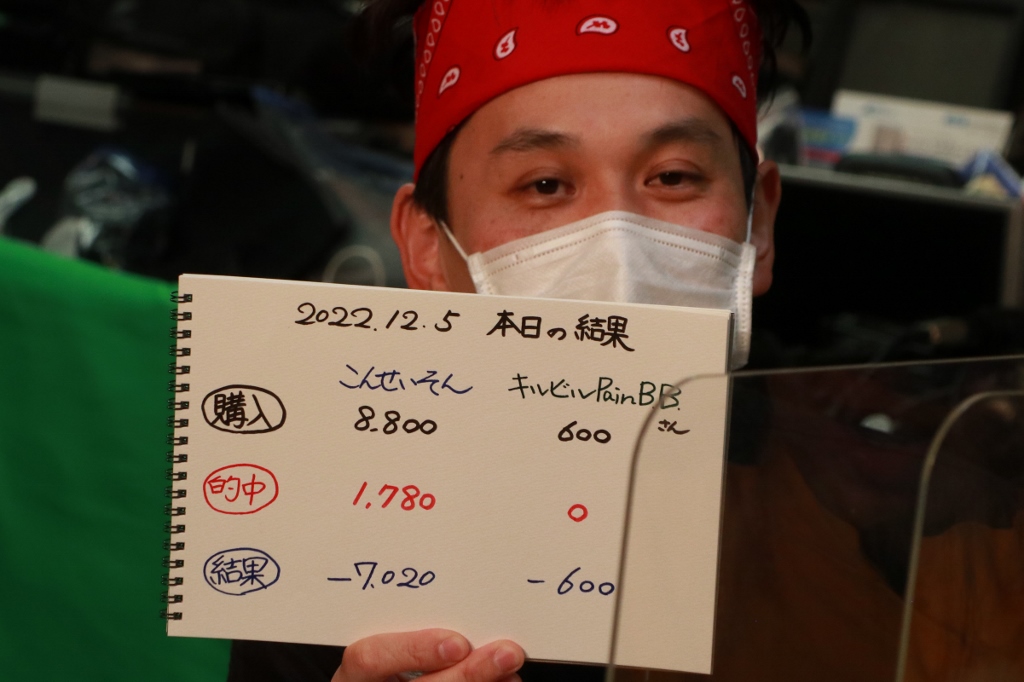 2022.12.5 本日の結果
こんせいそん キルビルPainBB.さん
購入 8.800 600
的中 1,780 0
結果 -7.020 -600